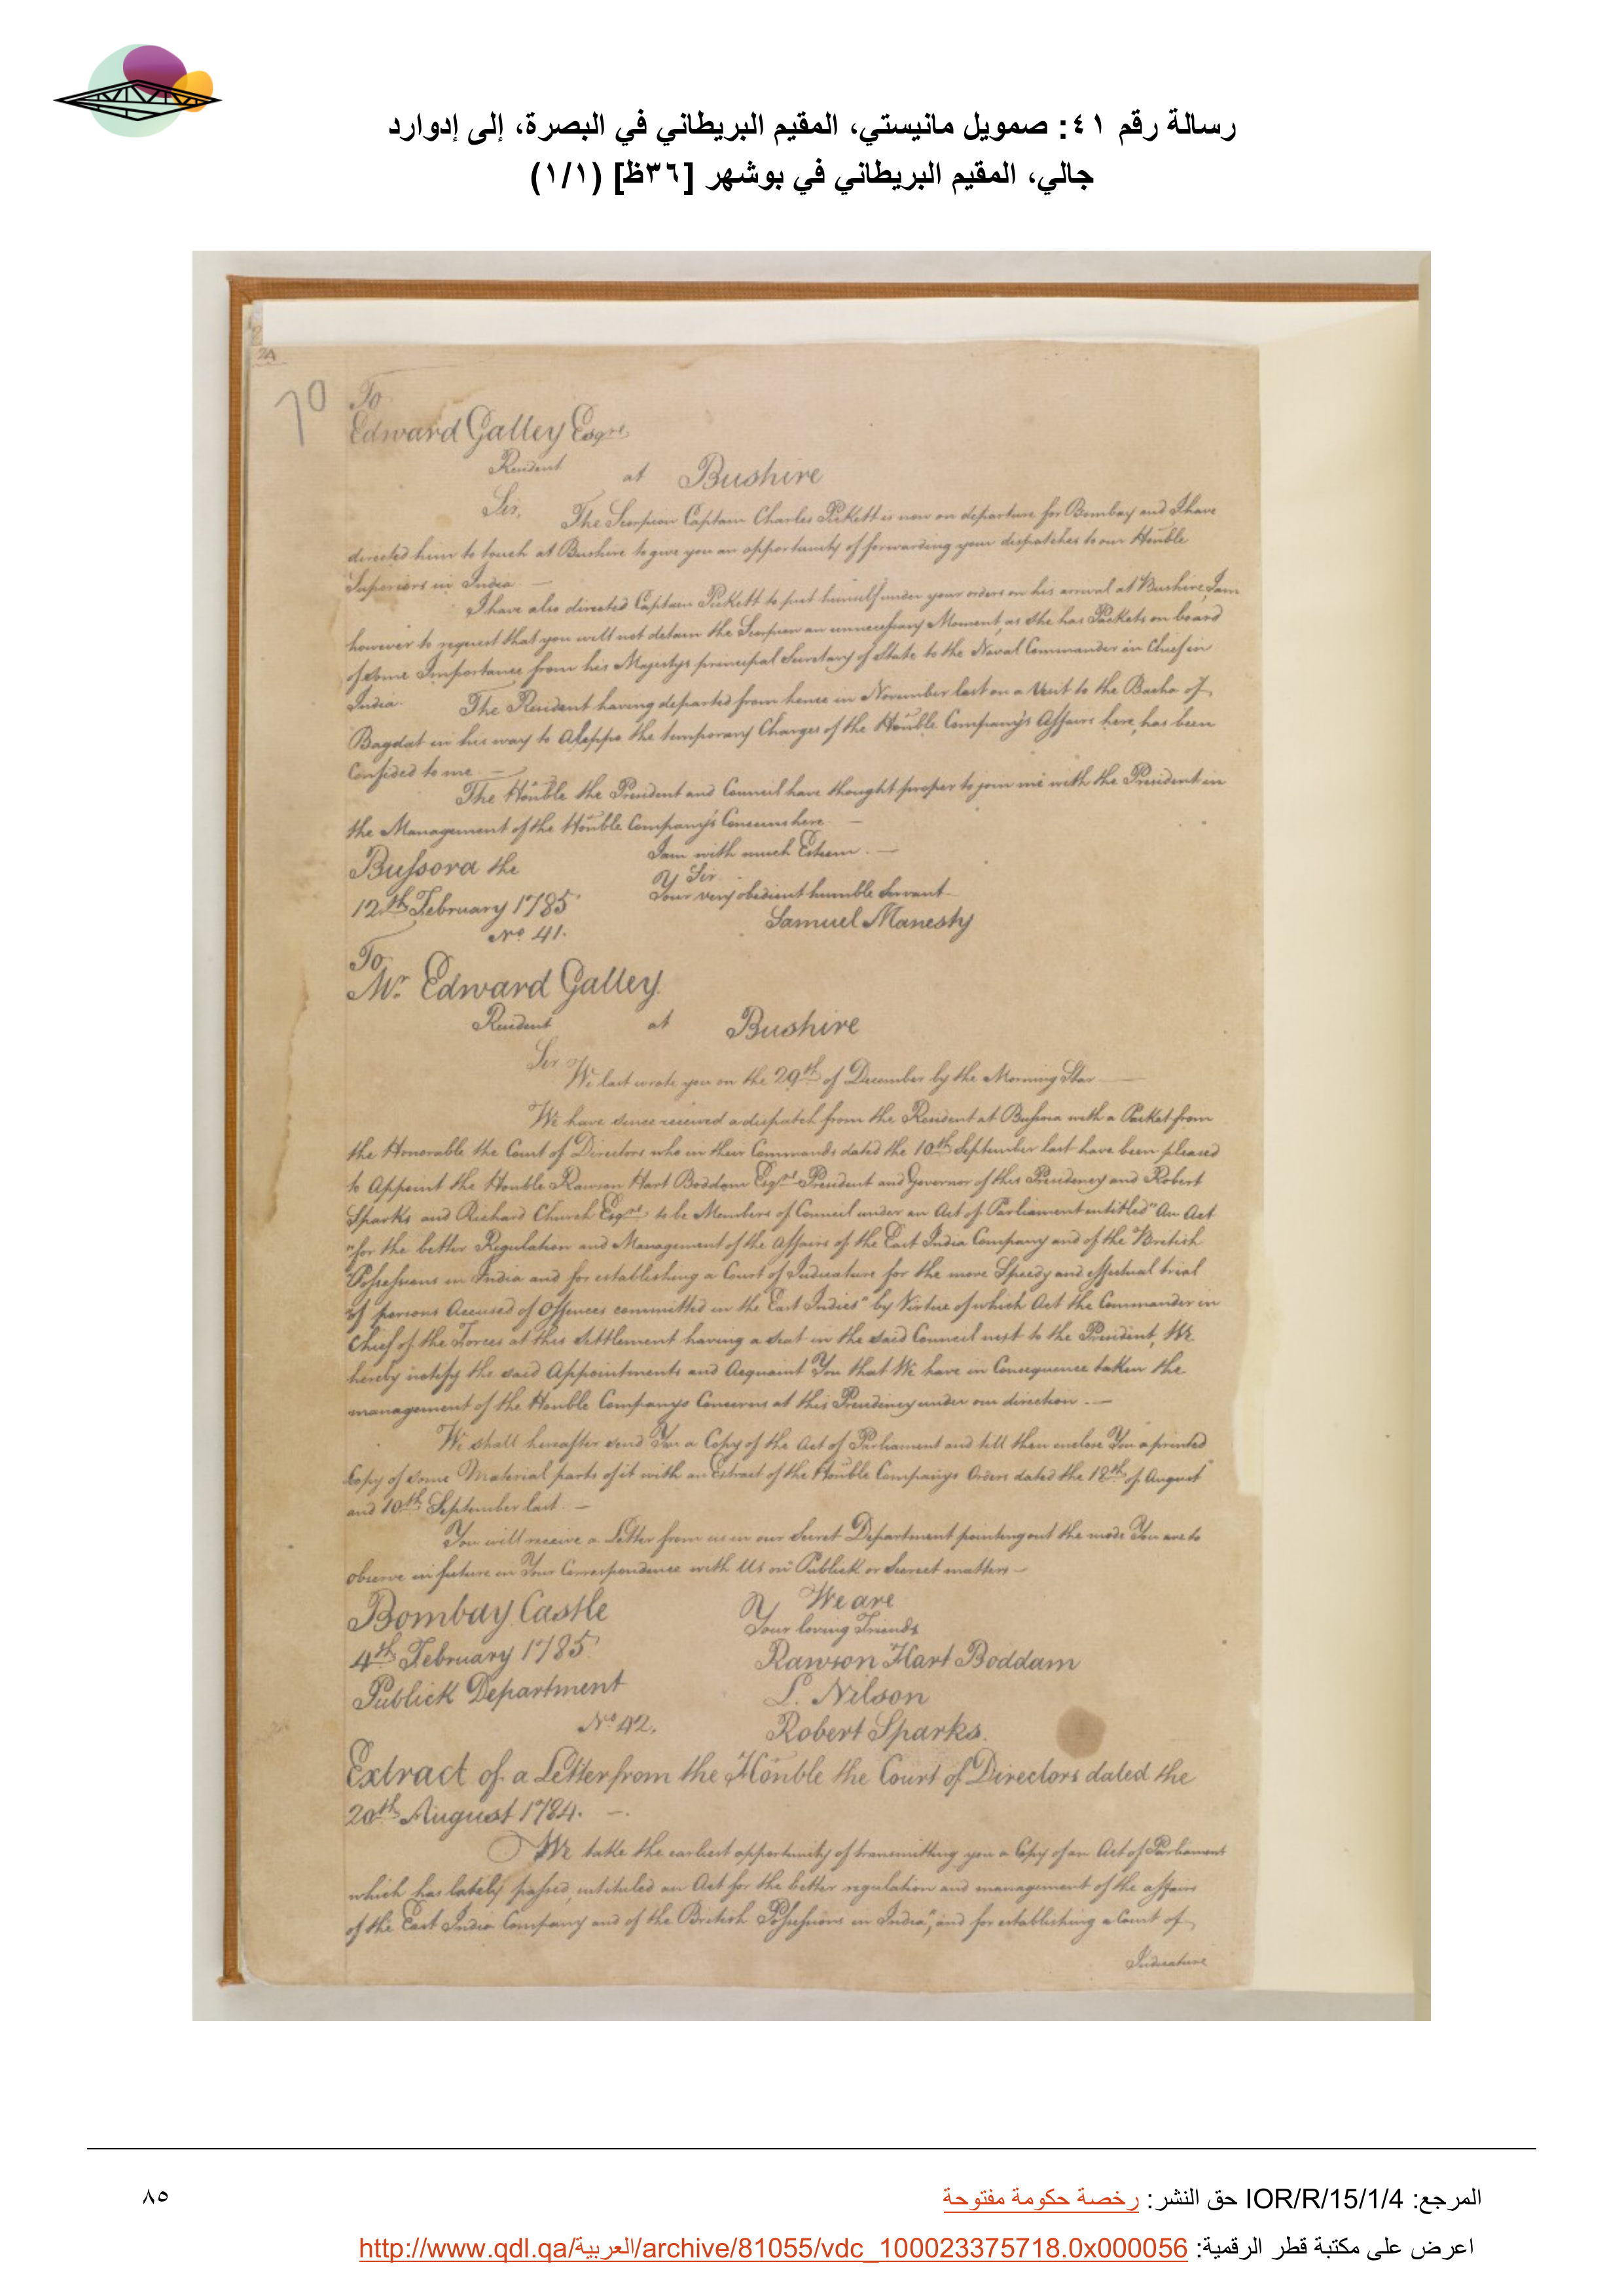 رسالة رقم ٤١: صمويل مانيستي، المقيم البريطاني في البصرة، إلى إدوارد
جالي، المقيم البريطاني في بوشهر [٣٦ظ] (١/١)
2A
70
To
Edward Galley Esqre
Resident at Bushire
Sir, The Scorpion Captain Charles Pickett is now on departure for Bombay and I have
directed him to touch at Bushire to give you an opportunity of forwarding your dispatches to our Honble
Superiors in India —
I have also directed Captain Pickett to put himself under your orders on his arrival at Bushire, I am
however to request that you will not detain the Scorpion an unnecessary Moment, as She has Packets on board
of some Importance from his Majestys principal Secretary of State to the Naval Commander in Chief in
India. The Resident having departed from hence in November last on a Visit to the Bacha of
Bagdat in his way to Aleppo the temporary Charges of the Honble Company's Affairs here, has been
Confided to me. —
The Honble the President and Council have thought proper to join me with the President in
the Management of the Honble Company's Concerns here —
Bussora the I am with much Esteem. —
Sir
12th February 1785 Your very obedient humble Servant
Samuel Manesty
No 41.
To
Mr Edward Galley
Resident at Bushire
Sir
We last wrote you on the 29th of December by the Morning Star —
We have since received a dispatch from the Resident at Bussora with a Packet from
the Honorable the Court of Directors who in their Commands dated the 10th September last have been pleased
to Appoint the Honble Rawson Hart Boddam Esqre President and Governor of this Presidency and Robert
Sparks and Richard Church Esqrs to be Members of Council under an Act of Parliament entitled "An Act
"for the better Regulation and Management of the Affairs of the East India Company and of the British
Possessions in India and for establishing a Court of Judicature for the more Speedy and effectual trial
of persons Accused of Offences committed in the East Indies" by Virtue of which Act the Commander in
Chief of the Forces at this Settlement having a seat in the said Council next to the President, We
hereby notify the said Appointments and Acquaint You that We have in Consequence taken the
management of the Honble Companys Concerns at this Presidency under our direction. —
We shall hereafter send You a Copy of the Act of Parliament and till then enclose You a printed
Copy of some Material parts of it with an Extract of the Honble Companys Orders dated the 18th of August
and 10th September last. —
You will receive a Letter from us in our Secret Department pointing out the mode You are to
observe in future in Your Correspondence with Us on Publick or Secret matters —
Bombay Castle We are
Your loving Friends
4th February 1785 Rawson Hart Boddam
Publick Department L. Nilson
No 42. Robert Sparks.
Extract of a Letter from the Honble the Court of Directors dated the
20th August 1784. —.
We take the earliest opportunity of transmitting you a Copy of an Act of Parliament
which has lately passed, intituled an Act for the better regulation and management of the affairs
of the East India Company and of the British Possessions in India", and for establishing a Court of
Judicature
المرجع: IOR/R/15/1/4 حق النشر: رخصة حكومة مفتوحة
٨٥
اعرض على مكتبة قطر الرقمية: http://www.qdl.qa/العربية/archive/81055/vdc_100023375718.0x000056